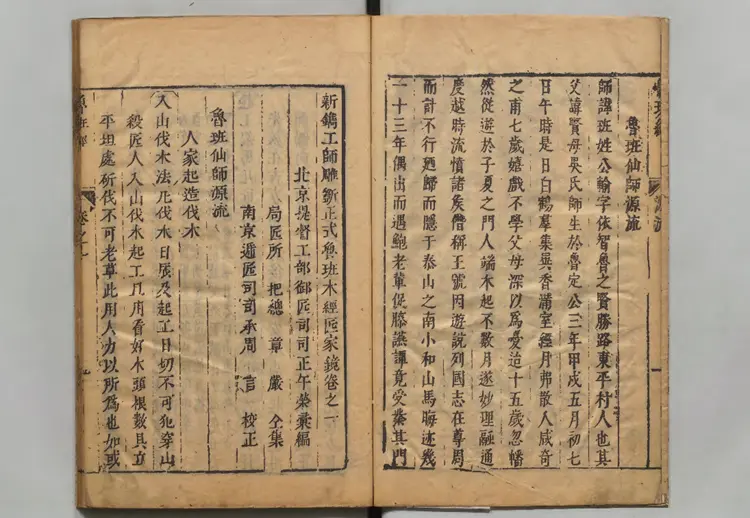 魯班仙師源流
師諱班姓公輸字依智魯之賢勝路東平村人也其
父諱賢母吳氏師生於魯定公三年甲戌五月初七
日午時是日白鶴羣集異香滿室經月弗散人咸奇
之甫七歲嬉戲不學父母深以爲憂迨十五歲忽幡
然從遊於子夏之門人端木起不數月遂妙理融通
度越時流憤諸矦僭稱王號因遊說列國志在尊周
而計不行廼歸而隱于泰山之南小和山焉晦迹幾
一十三年偶出而遇鮑老輩促膝讌譚竟受業其門
新鐫工師雕斲正式魯班木經匠家鏡卷之一
北京提督工部御匠司司正午榮彙編
局匠所把總章嚴仝集
南京遞匠司司承周言校正
魯班仙師源流
人家起造伐木
入山伐木法凡伐木日辰及起工日切不可犯穿山
殺匠人入山伐木起工且用看好木頭根數具立
平坦處斫伐不可老草此用人力以所爲也如或
卷之一